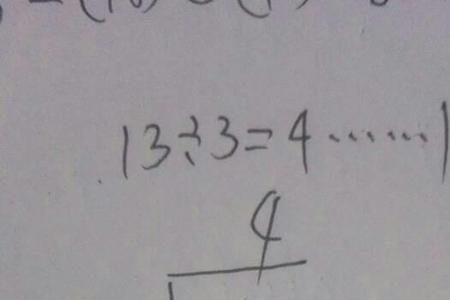 13÷3=4……1
4